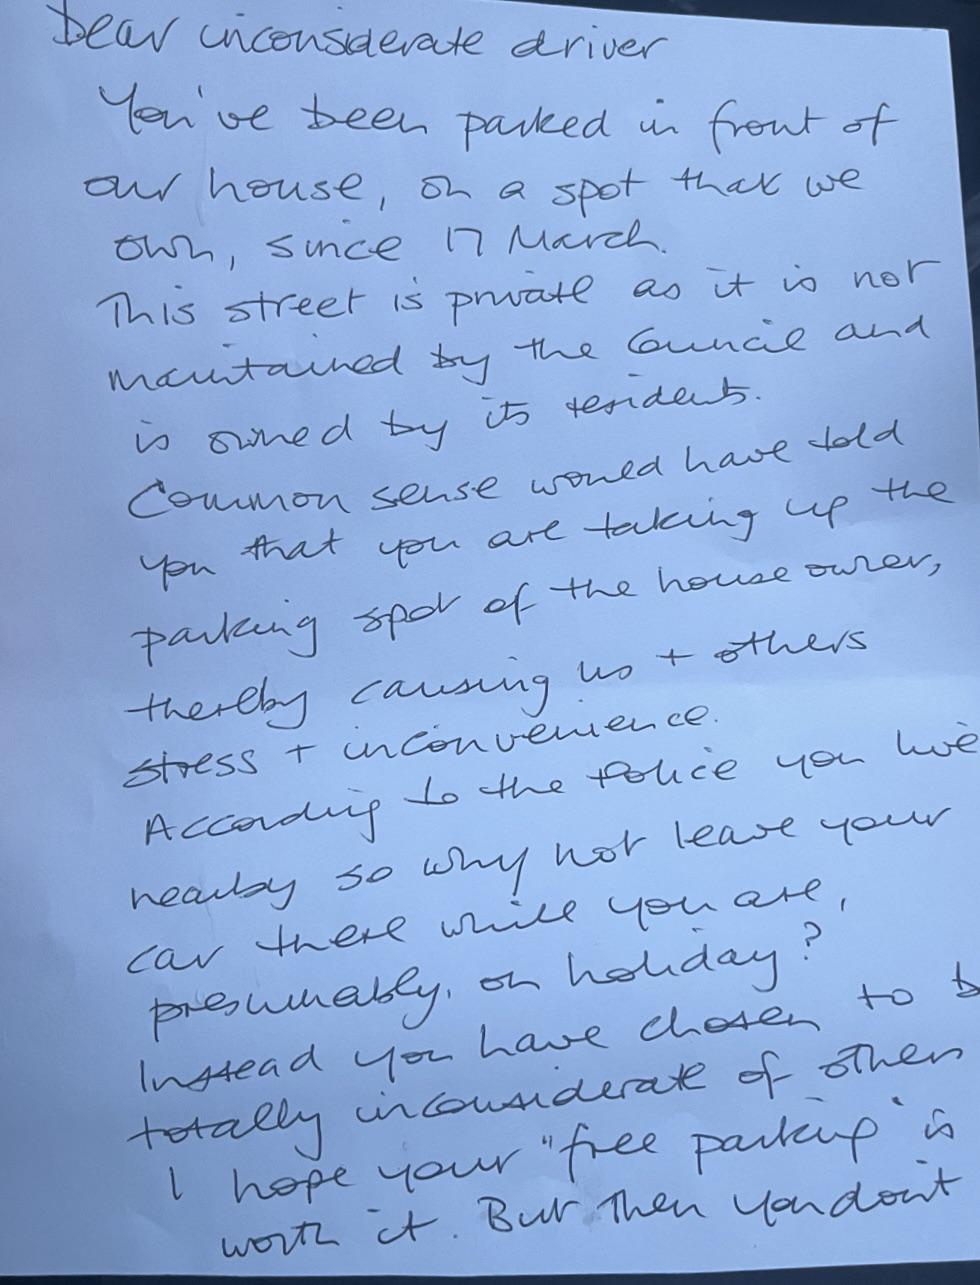 Dear inconsiderate driver
You've been parked in front of
our house, on a spot that we
own, since 17 March.
This street is private as it is not
maintained by the Council and
is owned by its residents.
Common sense would have told
you that you are taking up the
parking spot of the house owner,
thereby causing us + others
stress + inconvenience.
According to the Police you live
nearby so why not leave your
car there while you are,
presumably, on holiday?
Instead you have chosen to b
totally inconsiderate of others
I hope your "free parking" is
worth it. But then you don't